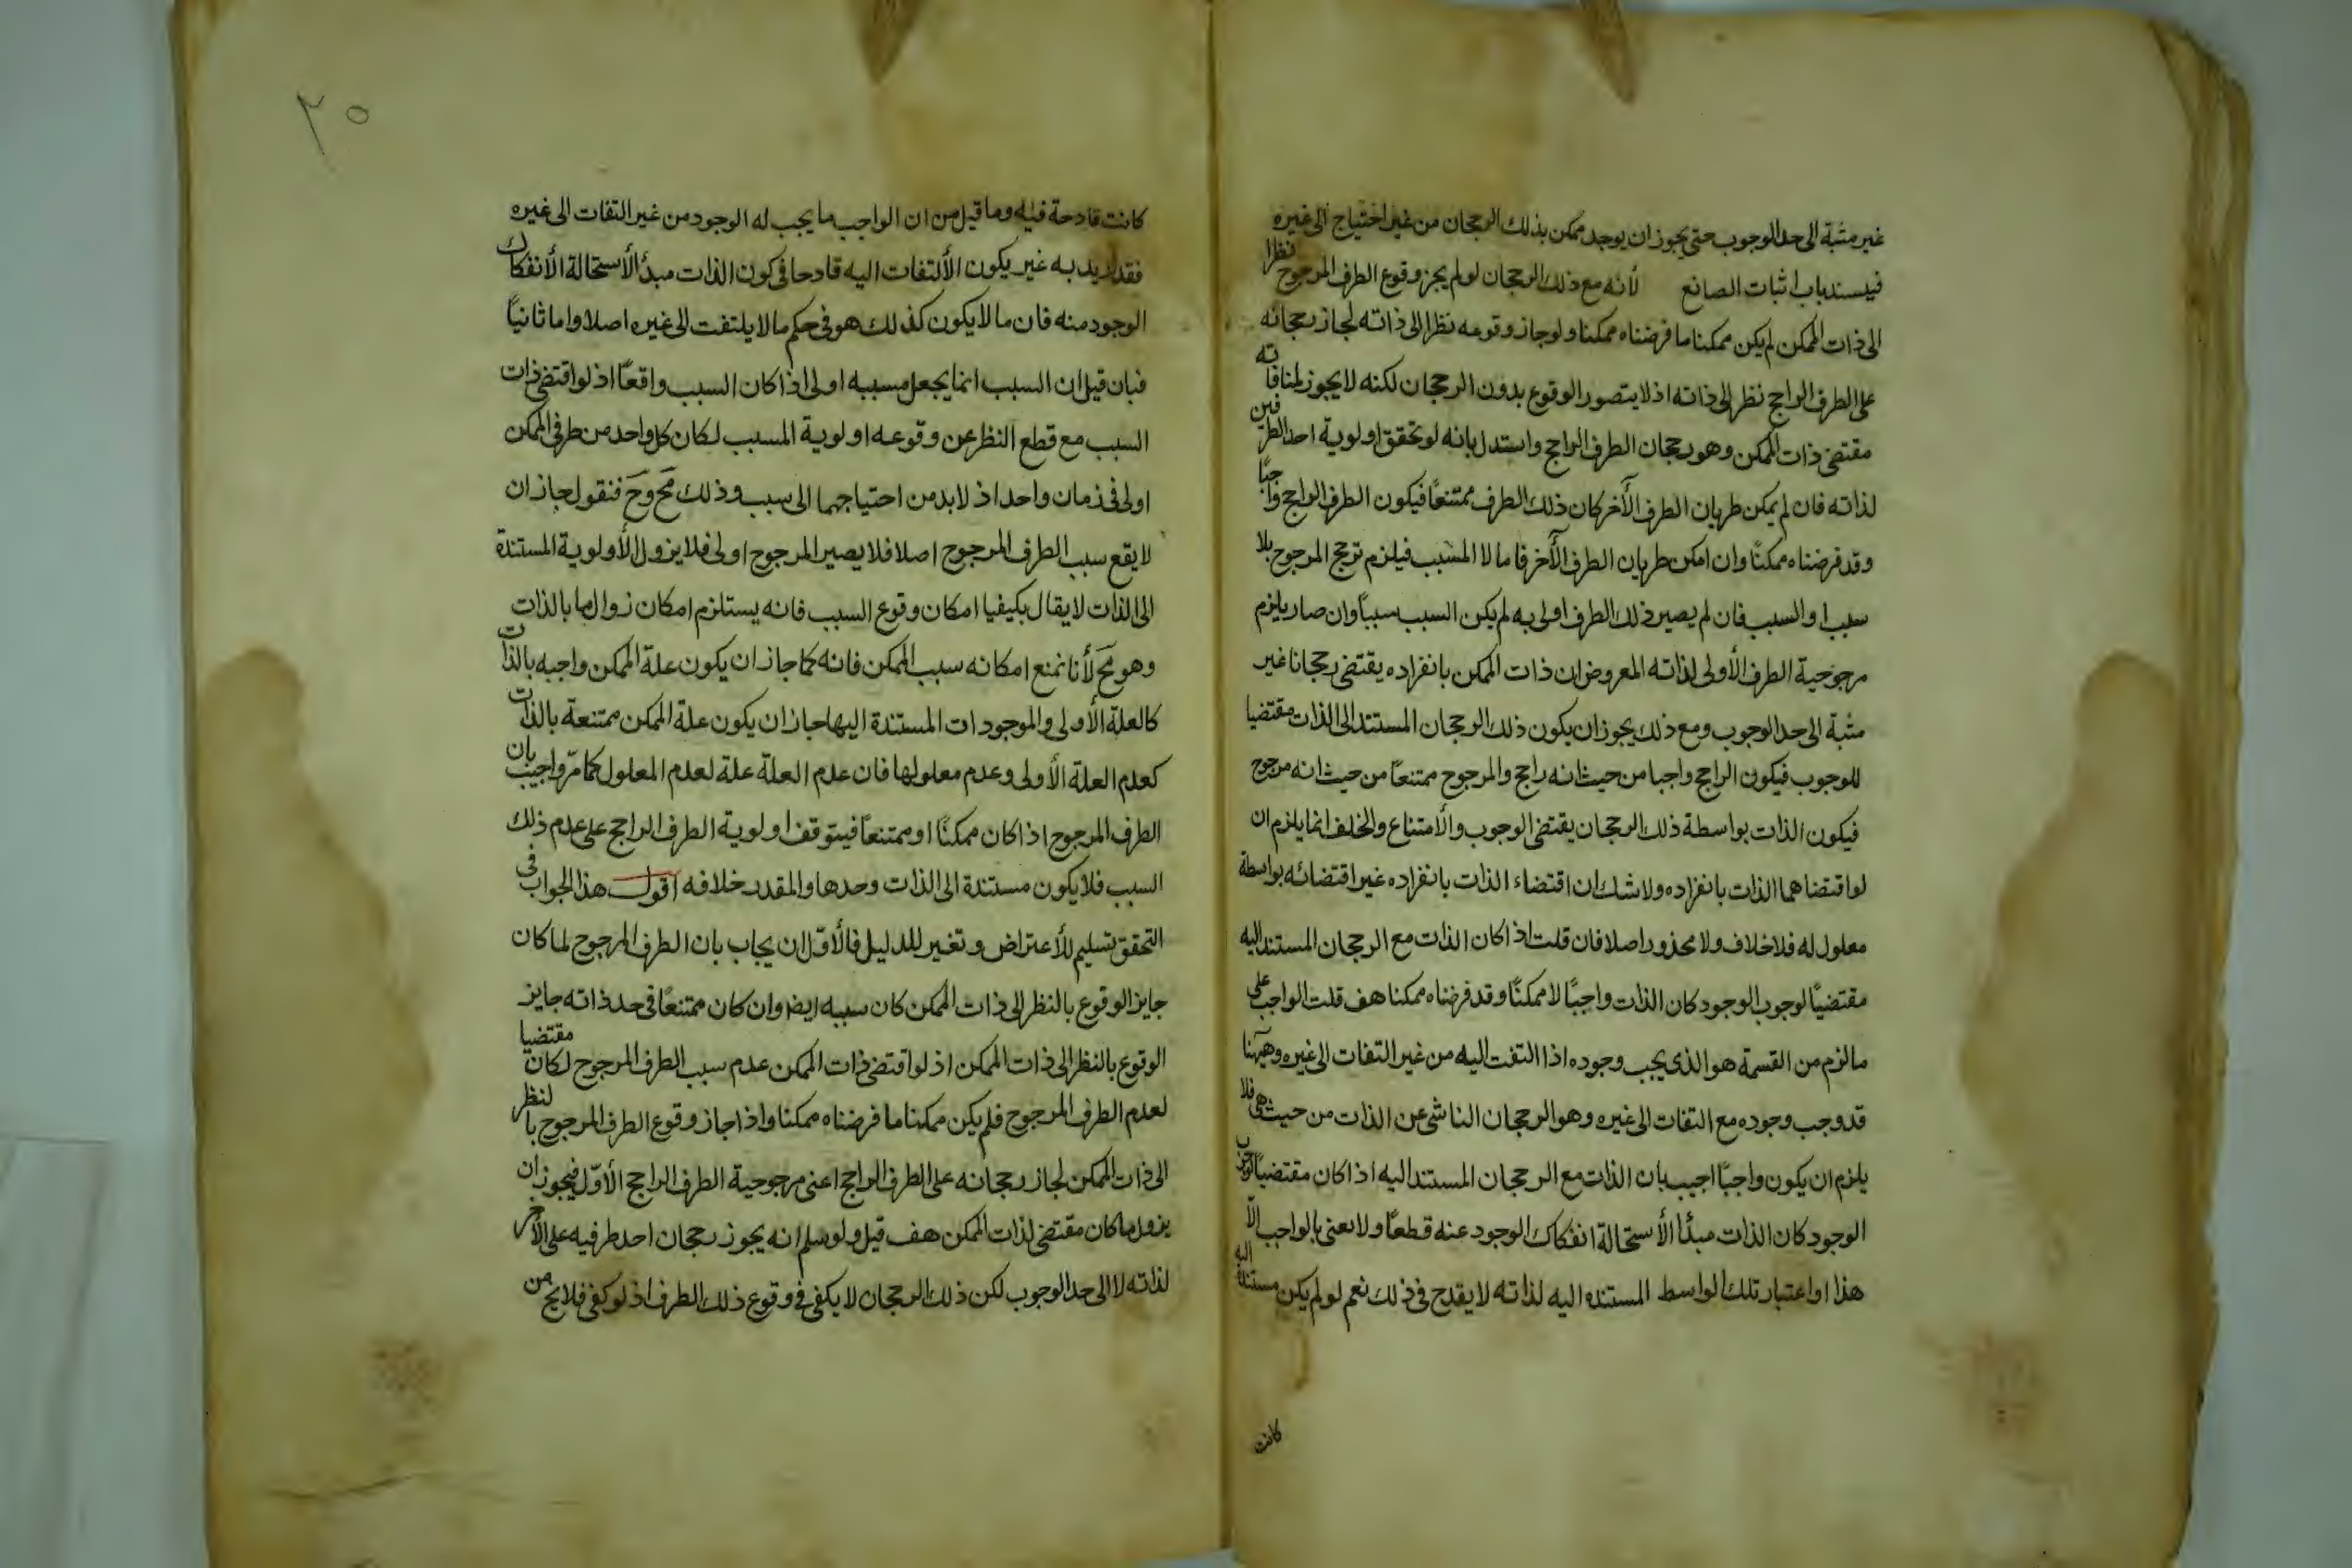 غير مثبة الى حد الوجوب حتى يجوز ان يوجد ممكن بذلك الرجحان من غير احتياج الى غيره
فيسند باب اثبات الصانع لأنه مع ذلك الرجحان لو لم يجز وقوع الطرف المرجوح نظرا
الى ذات الممكن لم يكن ممكنا ما فرضناه ممكنا ولو جاز وقوعه نظرا الى ذاته لجاز رجحانه
على الطرف الراجح نظر الى ذاته اذ لا يتصور الوقوع بدون الرجحان لكنه لا يجوز لمنافاته
مقتضى ذات الممكن وهو رجحان الطرف الراجح واستدل بانه لو تحقق اولوية احد الطرفين
لذاته فان لم يمكن طريان الطرف الآخر كان ذلك الطرف ممتنعًا فيكون الطرف الراجح واجبًا
وقد فرضناه ممكنًا وان امكن طريان الطرف الآخر فاما لا المسبب فيلزم ترجح المرجوح بلا
سبب او السبب فان لم يصير ذلك الطرف اولى به لم يكن السبب سببًا وان صار يلزم
مرجوحية الطرف الأولى لذاته المعروض ان ذات الممكن بانفراده يقتضى رجحانا غير
مثبة الى حد الوجوب ومع ذلك يجوز ان يكون ذلك الرجحان المستند الى الذات مقتضيا
للوجوب فيكون الراجح واجبا من حيث انه راجح والمرجوح ممتنعًا من حيث انه مرجوح
فيكون الذات بواسطة ذلك الرجحان يقتضى الوجوب والأمتناع والخلف انما يلزم ان
لو اقتضاهما الذات بانفراده ولا شك ان اقتضاء الذات بانفراده غير اقتضائه بواسطة
معلول له فلا خلاف ولا محذور اصلا فان قلت اذا كان الذات مع الرجحان المستند اليه
مقتضيًا لوجوب الوجود كان الذات واجبًا لا ممكنًا وقد فرضناه ممكنا هف قلت الواجب على
ما لزم من القسمة هو الذى يجب وجوده اذا التفت اليه من غير التفات الى غيره وههنا
قد وجب وجوده مع التفات الى غيره وهو الرجحان الناشى عن الذات من حيث هى فلا
يلزم ان يكون واجبًا اجيب بان الذات مع الرجحان المستند اليه اذا كان مقتضيًا لوجوب
الوجود كان الذات مبدأ الأستحالة انفكاك الوجود عنه قطعًا ولا نعنى بالواجب الّا
هذا او اعتبار تلك الواسط المستنده اليه لذاته لا يقدح فى ذلك نعم لو لم يكن مستندة اليه
كانت
٢٥
كانت قادحة فيه وما قيل من ان الواجب ما يجب له الوجود من غير التفات الى غيره
فقد اريد به غير يكون الألتفات اليه قادحا فى كون الذات مبدأ الأستحالة الأنفكاك
الوجود منه فان ما لا يكون كذلك هو فى حكم ما لا يلتفت الى غيره اصلا واما ثانيًا
فبان قيل ان السبب انما يجعل مسببه اولى اذا كان السبب واقعًا اذ لو اقتضى ذات
السبب مع قطع النظر عن وقوعه اولوية المسبب لكان كل واحد من طرفى الممكن
اولى فى زمان واحد اذ لا بد من احتياجهما الى سبب وذلك مح وح فنقول جاز ان
لا يقع سبب الطرف المرجوح اصلا فلا يصير المرجوح اولى فلا يزول الأولوية المستندة
الى الذات لا يقال يكيفيا امكان وقوع السبب فانه يستلزم امكان زوال ما بالذات
وهو مح لأنا نمنع امكانه سبب الممكن فانه كما جاز ان يكون علة الممكن واجبه بالذات
كالعلة الأولى والموجودات المستندة اليها جاز ان يكون علة الممكن ممتنعة بالذات
كعدم العلة الأولى وعدم معلولها فان عدم العلة علة لعدم المعلول كما مرّ واجيب بان
الطرف المرجوح اذا كان ممكنًا او ممتنعًا فيتوقف اولوية الطرف الراجح على عدم ذلك
السبب فلا يكون مستندة الى الذات وحدها والمقدر خلافه اقول هذا الجواب فى
التحقق تسليم للأعتراض وتغير للدليل فالأوّل ان يجاب بان الطرف المرجوح لما كان
جايز الوقوع بالنظر الى ذات الممكن كان سببه ايضا وان كان ممتنعًا فى حد ذاته جايز
الوقوع بالنظر الى ذات الممكن اذ لو اقتضى ذات الممكن عدم سبب الطرف المرجوح لكان مقتضيا
لعدم الطرف المرجوح فلم يكن ممكنا ما فرضناه ممكنا واذا جاز وقوع الطرف المرجوح بالنظر
الى ذات الممكن لجاز رجحانه على الطرف الراجح اعنى مرجوحية الطرف الراجح الأوّل فيجوز ان
يزول ما كان مقتضى لذات الممكن هف قيل ولو سلم انه يجوز رجحان احد طرفيه على الآخر
لذاته لا الى حد الوجوب لكن ذلك الرجحان لا يكفى فى وقوع ذلك الطرف اذ لو كفى فلا يخ من